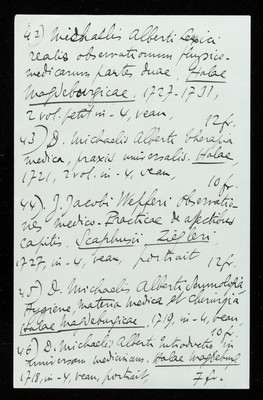 42) Michaelis Alberti Lexici
realis observationum physico-
medicarum partes duae, Halae
Magdeburgicae, 1727-1731,
2 vol. petit in-4, veau,
12 fr.
43) D. Michaelis Alberti therapia
medica, praxis universalis. Halae,
1721, 2 vol. in-4, veau,
10 fr.
44) J. Jacobi Wepferi observatio-
nes medico-Practicae de affectibus
capitis. Scaphusii Ziegleri
1727, in-4, veau, portrait 12 fr.
45) D. Michaelis Alberti Semiologia,
Hygiene, materia medica et chirurgia
Halae Magdeburgicae. 1719, in-4, veau,
10 fr.
46) D. Michaelis Alberti Introductio in
universam medicinam. Halae Magdeburg,
1718, in-4, veau, portrait, 7 fr.